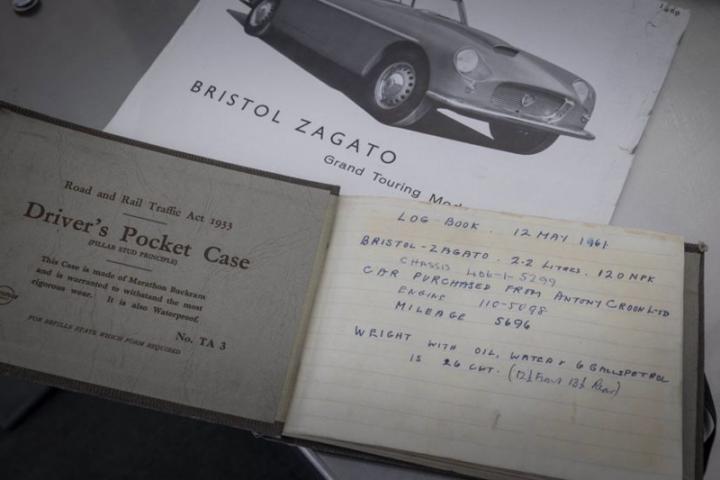 1960
BRISTOL ZAGATO
Grand Touring
Road and Rail Traffic Act 1933
Driver's Pocket Case
(PILLAR STUD PRINCIPLE)
This Case is made of Marathon Buckram
and is warranted to withstand the most
rigorous wear. It is also Waterproof.
No. TA 3
FOR REFILLS STATE WHICH FORM REQUIRED
LOG BOOK. 12 MAY 1961.
BRISTOL-ZAGATO. 2.2 LITRES. 120 MPH
CHASSIS 406-1-5299
CAR PURCHASED FROM ANTONY CROOK LTD
ENGINE 110-5098
MILEAGE 5696
WEIGHT WITH OIL, WATER & 6 GALLS PETROL
IS 26 CWT. (12½ Front 13½ Rear)